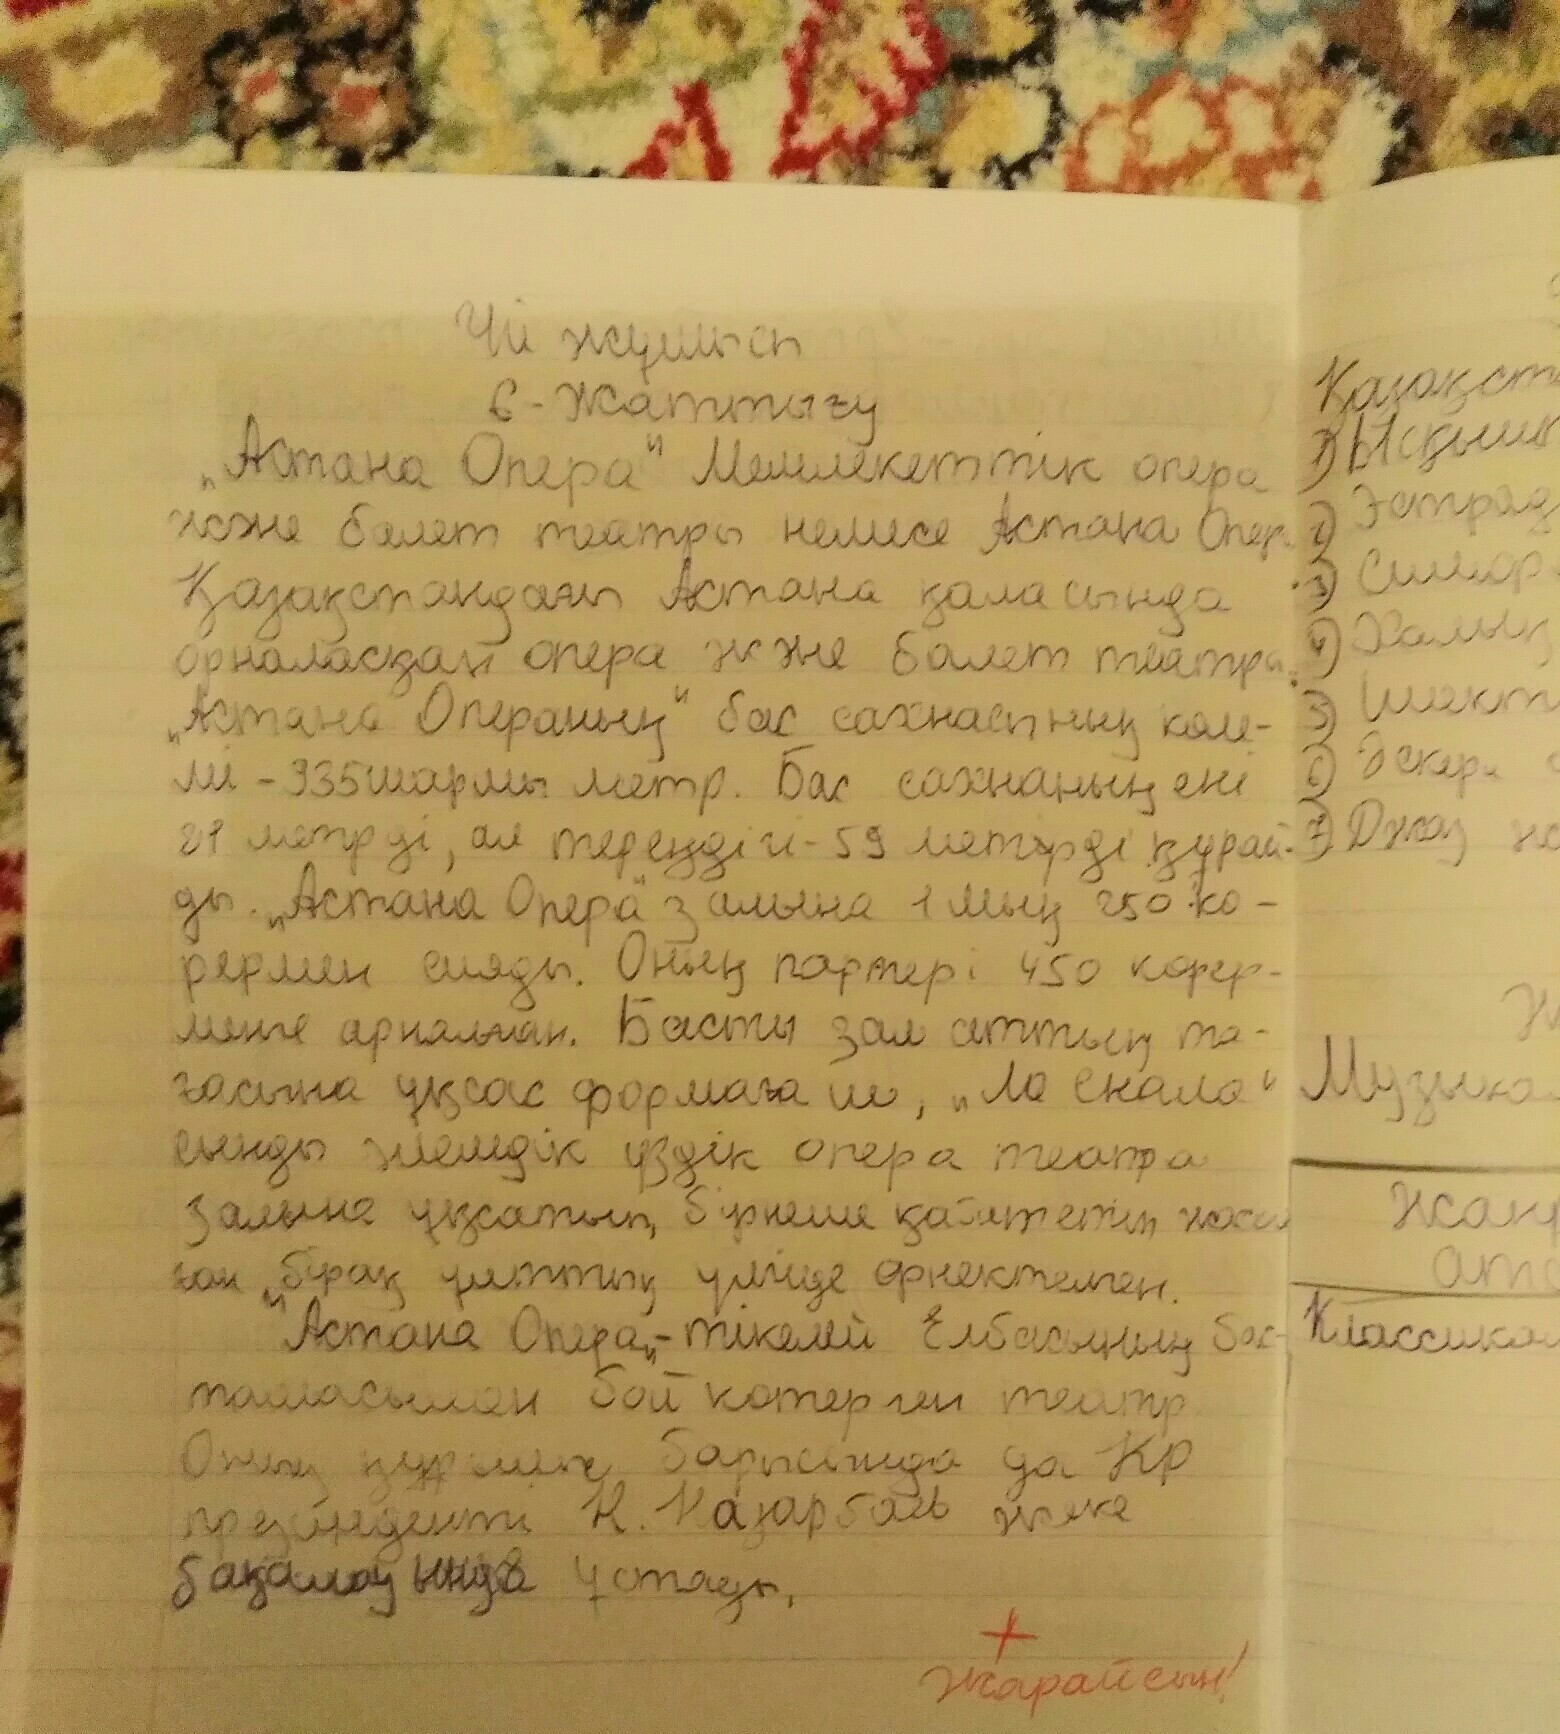 Үй жұмысы
6-Жаттығу
„Астана Опера" Мемлекеттік опера
және балет театры немесе Астана Опер
Қазақстандағы Астана қаласында
орналасқан опера және балет театры.
„Астана Операның" бас сахнасының көле-
мі - 935шаршы метр. Бас сахнаның ені
21 метрді, ал тереңдігі - 59 метірді құрай-
ды. „Астана Опера" залына 1 мың 250 кө-
рермен сияды. Оның партері 450 көрер-
менге арналған. Басты зал аттың та-
ғасына ұқсас формаға ие, „Ла Скала"
сынды әлемдік үздік опера театра
залына ұқсатып, бірнеше қабат етіп жасал
ған, бірақ ұлттық үлгіде өрнектелген.
"Астана Опера„ - тікелей Елбасының бас-
тамасымен бой көтерген театр
Оның құрылыс барысында да ҚР
президенті Н. Назарбаев жеке
бақылауында ұстады.
+
Жарайсың!
Қазақст
1) Ысқыш
2) Эстрад
3) Симфо
4) Халық
5) Шект
6) Әскери
7) Джаз
Музыкал
Жанр
ата
Классикал